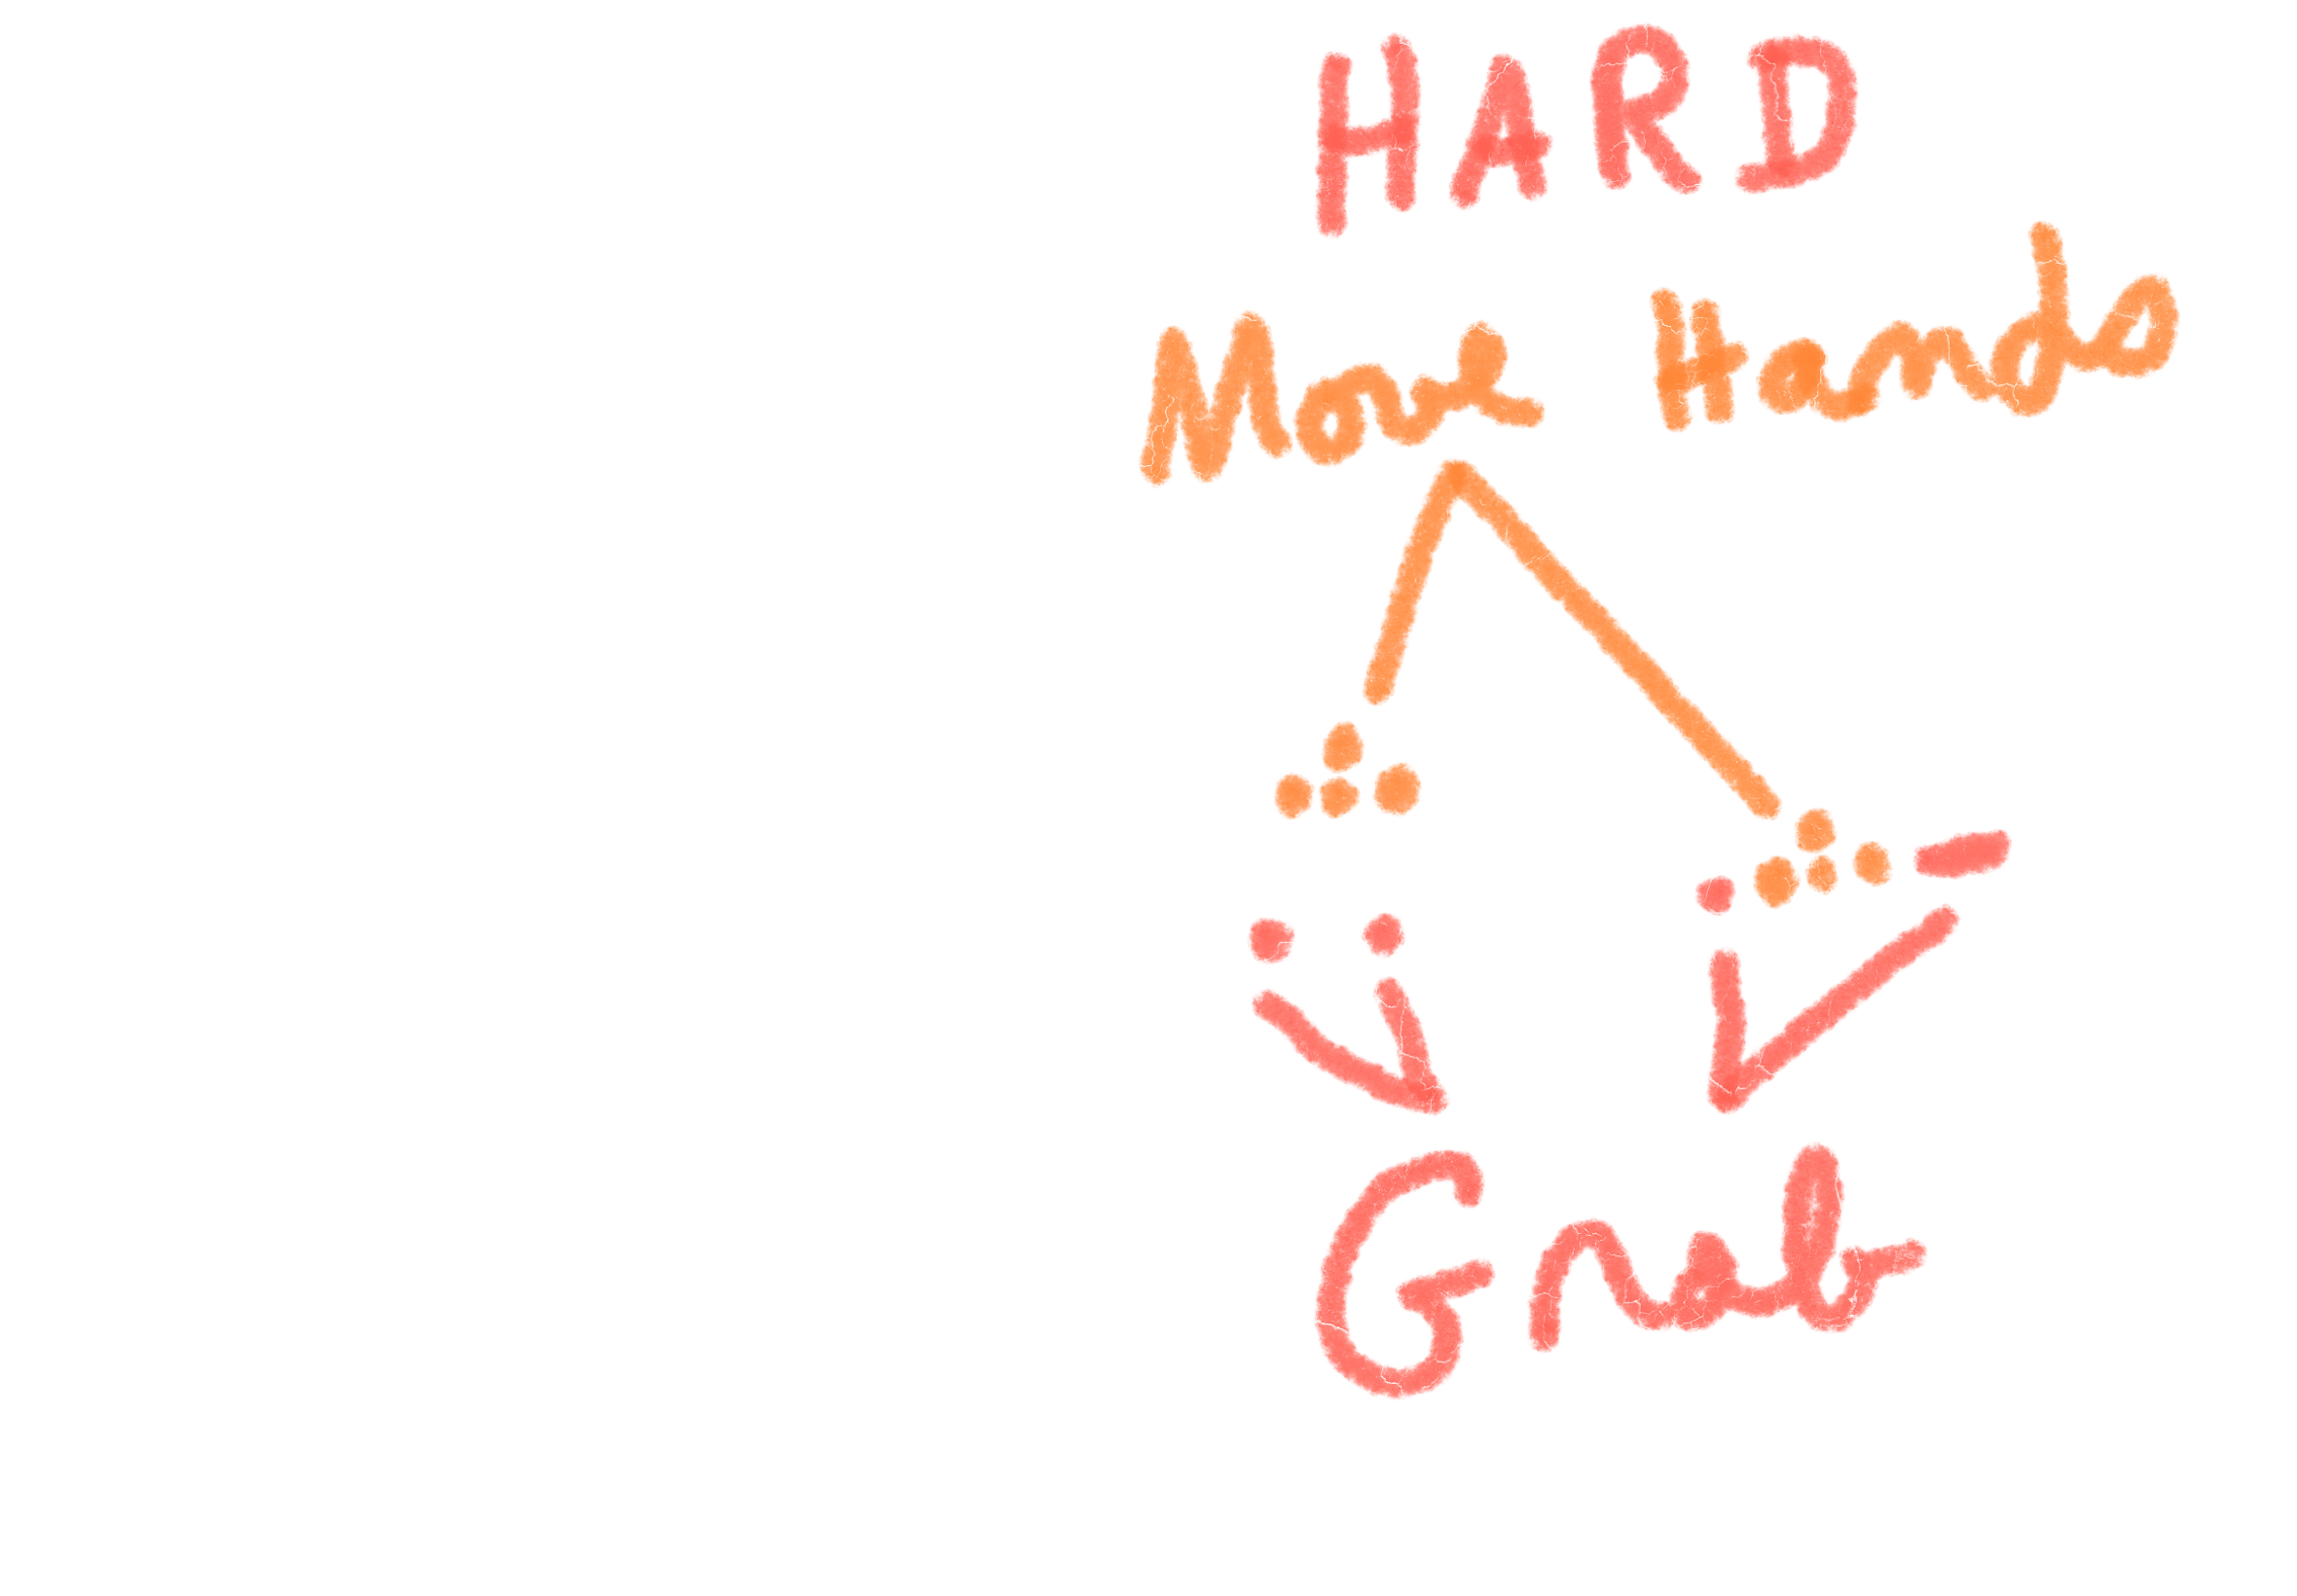 HARD
Move Hands
Grab